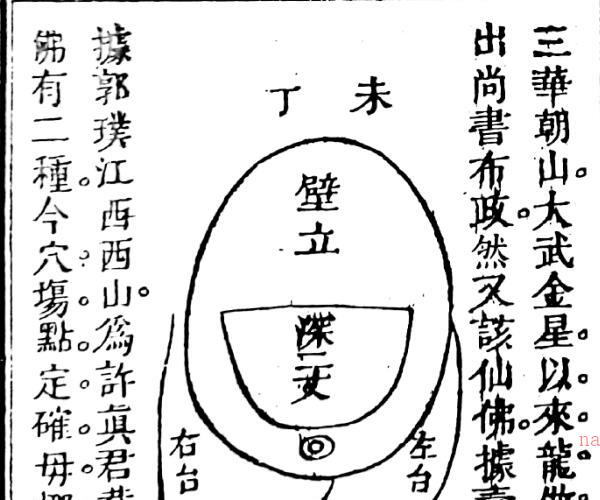 三華朝山。大武金星。以。來。龍
出尚書布政。然又該仙佛。據
未
丁
壁立
深三丈
左台
右台
據郭璞江西西山。為許真君
佛有二種。今穴塲。點。定。確。毋
na